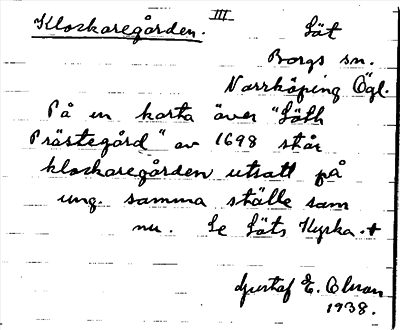 Klockaregården. III Löt
Borgs sn.
Norrköping Ögl.
På en karta över "Löth
Prästegård" av 1698 står
klockaregården utsatt på
ung. samma ställe som
nu. Se Löts Kyrka.
Gustaf E. Olsson
1938.